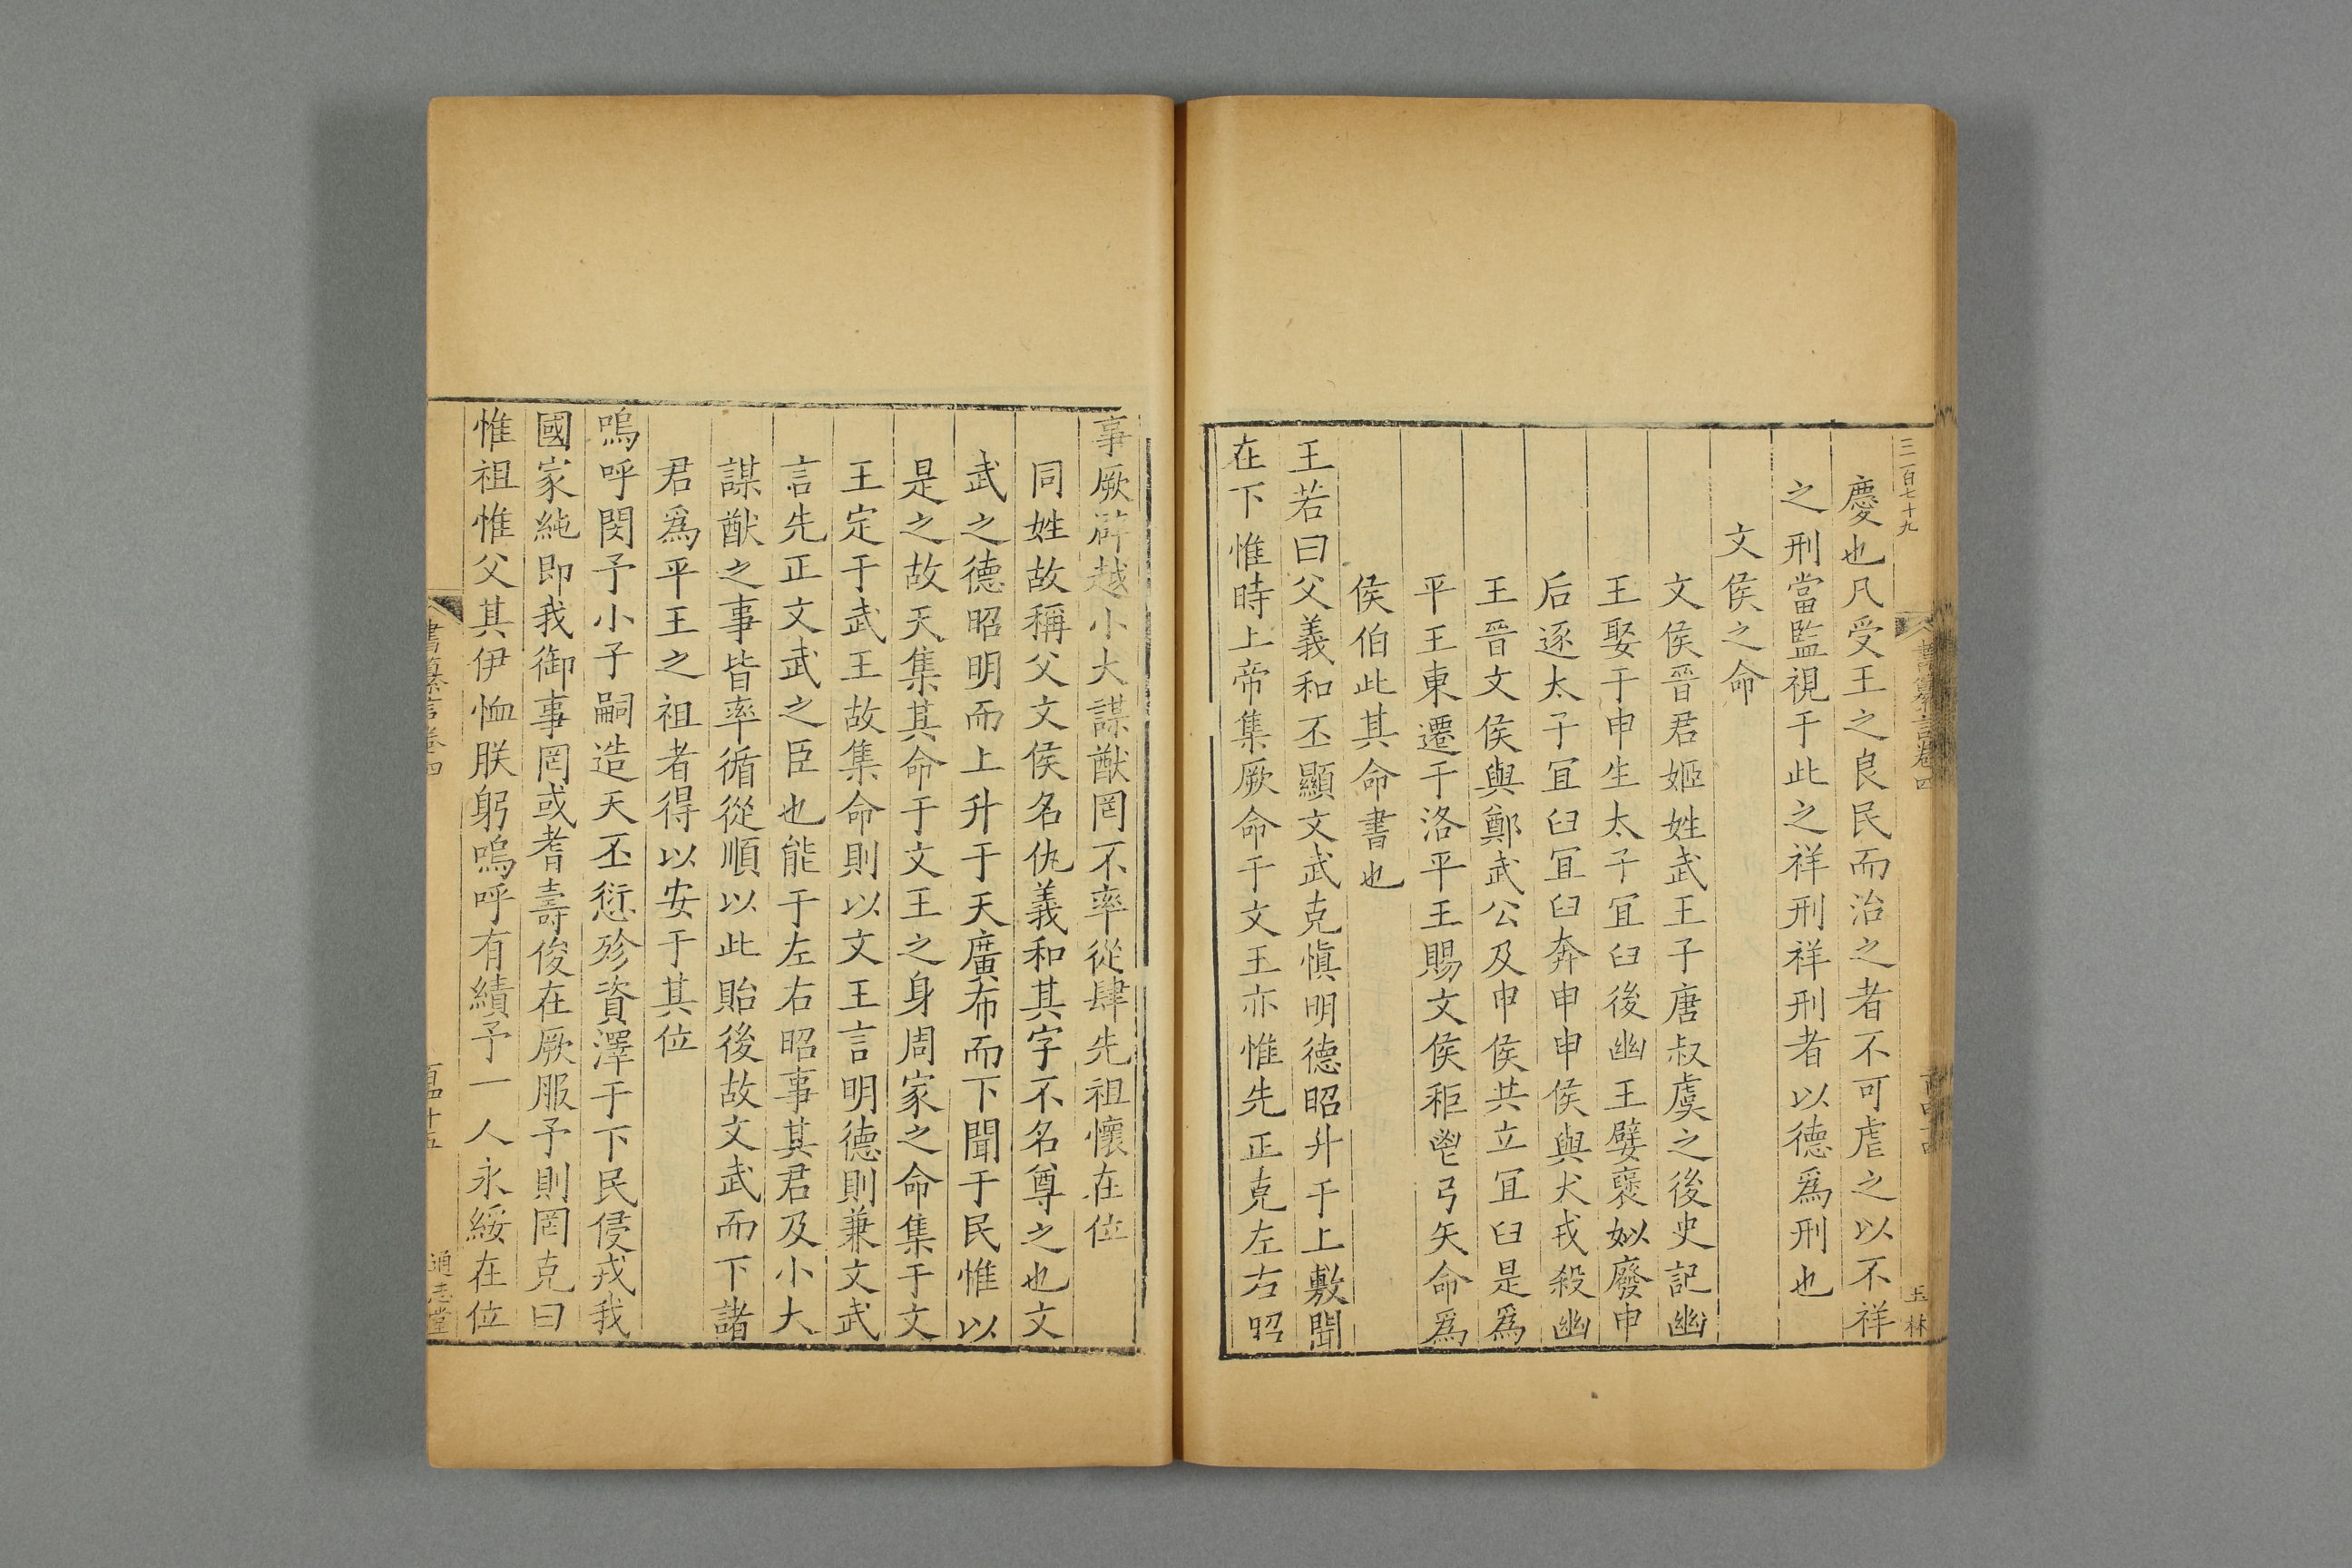 三百七十九
書纂言卷四
玉林
慶也凡受王之良民而治之者不可虐之以不祥
之刑當監視于此之祥刑祥刑者以德爲刑也
文侯之命
文侯晉君姬姓武王子唐叔虞之後史記幽
王娶于申生太子宜臼後幽王嬖褒姒廢申
后逐太子宜臼宜臼奔申申侯與犬戎殺幽
王晉文侯與鄭武公及申侯共立宜臼是爲
平王東遷于洛平王賜文侯秬鬯弓矢命爲
侯伯此其命書也
王若曰父義和丕顯文武克愼明德昭升于上敷聞
在下惟時上帝集厥命于文王亦惟先正克左右昭
事厥辟越小大謀猷罔不率從肆先祖懷在位
同姓故稱父文侯名仇義和其字不名尊之也文
武之德昭明而上升于天廣布而下聞于民惟以
是之故天集其命于文王之身周家之命集于文
王定于武王故集命則以文王言明德則兼文武
言先正文武之臣也能于左右昭事其君及小大
謀猷之事皆率循從順以此貽後故文武而下諸
君爲平王之祖者得以安于其位
嗚呼閔予小子嗣造天丕愆殄資澤于下民侵戎我
國家純卽我御事罔或耆壽俊在厥服予則罔克曰
惟祖惟父其伊恤朕躬嗚呼有績予一人永綏在位
書纂言卷四
百四十五
通志堂